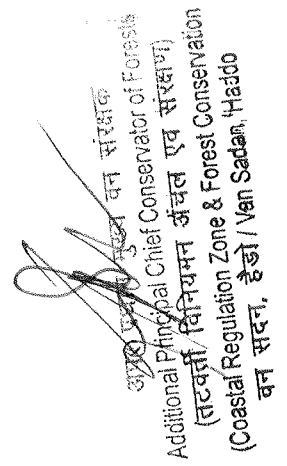 मुख्य वन संरक्षक
Additional Principal Chief Conservator of Forests
(तटवर्ती विनियमन अंचल एवं संरक्षण)
(Coastal Regulation Zone & Forest Conservation
वन सदन, हैडो / Van Sadan, Haddo